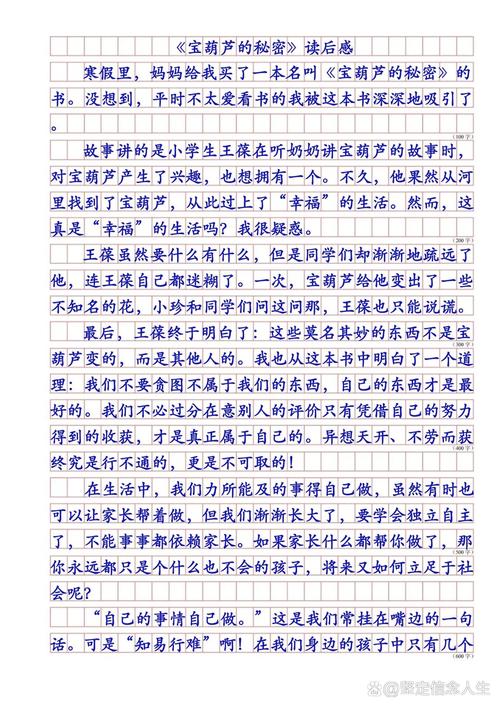 《宝葫芦的秘密》读后感
寒假里，妈妈给我买了一本名叫《宝葫芦的秘密》的
书。没想到，平时不太爱看书的我被这本书深深地吸引了
。
（100字）
故事讲的是小学生王葆在听奶奶讲宝葫芦的故事时，
对宝葫芦产生了兴趣，也想拥有一个。不久，他果然从河
里找到了宝葫芦，从此过上了“幸福”的生活。然而，这
真是“幸福”的生活吗？我很疑惑。
（200字）
王葆虽然要什么有什么，但是同学们却渐渐地疏远了
他，连王葆自己都迷糊了。一次，宝葫芦给他变出了一些
不知名的花，小珍和同学们问这问那，王葆也只能说谎。
最后，王葆终于明白了：这些莫名其妙的东西不是宝
（300字）
葫芦变的，而是其他人的。我也从这本书中明白了一个道
理：我们不要贪图不属于我们的东西，自己的东西才是最
好的。我们不必过分在意别人的评价只有凭借自己的努力
得到的收获，才是真正属于自己的。异想天开、不劳而获
（400字）
终究是行不通的，更是不可取的！
在生活中，我们力所能及的事得自己做，虽然有时也
可以让家长帮着做，但我们渐渐长大了，要学会独立自主
了，不能事事都依赖家长。如果家长什么都帮你做了，那
（500字）
你永远都只是个什么也不会的孩子，将来又如何立足于社
会呢？
“自己的事情自己做。”这是我们常挂在嘴边的一句
话。可是“知易行难”啊！在我们身边的孩子中只有几个
（600字）
@坚定信念人生